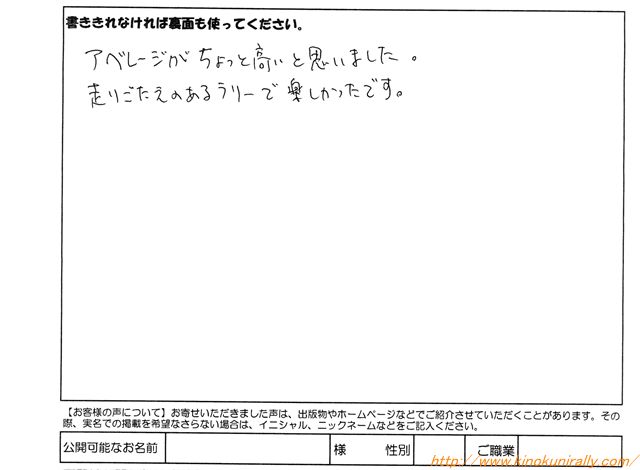 書ききれなければ裏面も使ってください。
アベレージがちょっと高いと思いました。
走りごたえのあるラリーで楽しかったです。
【お客様の声について】お寄せいただきました声は、出版物やホームページなどでご紹介させていただくことがあります。その
際、実名での掲載を希望なさらない場合は、イニシャル、ニックネームなどをご記入ください。
公開可能なお名前 様 性別 ご職業
http://www.kinokunirally.com/